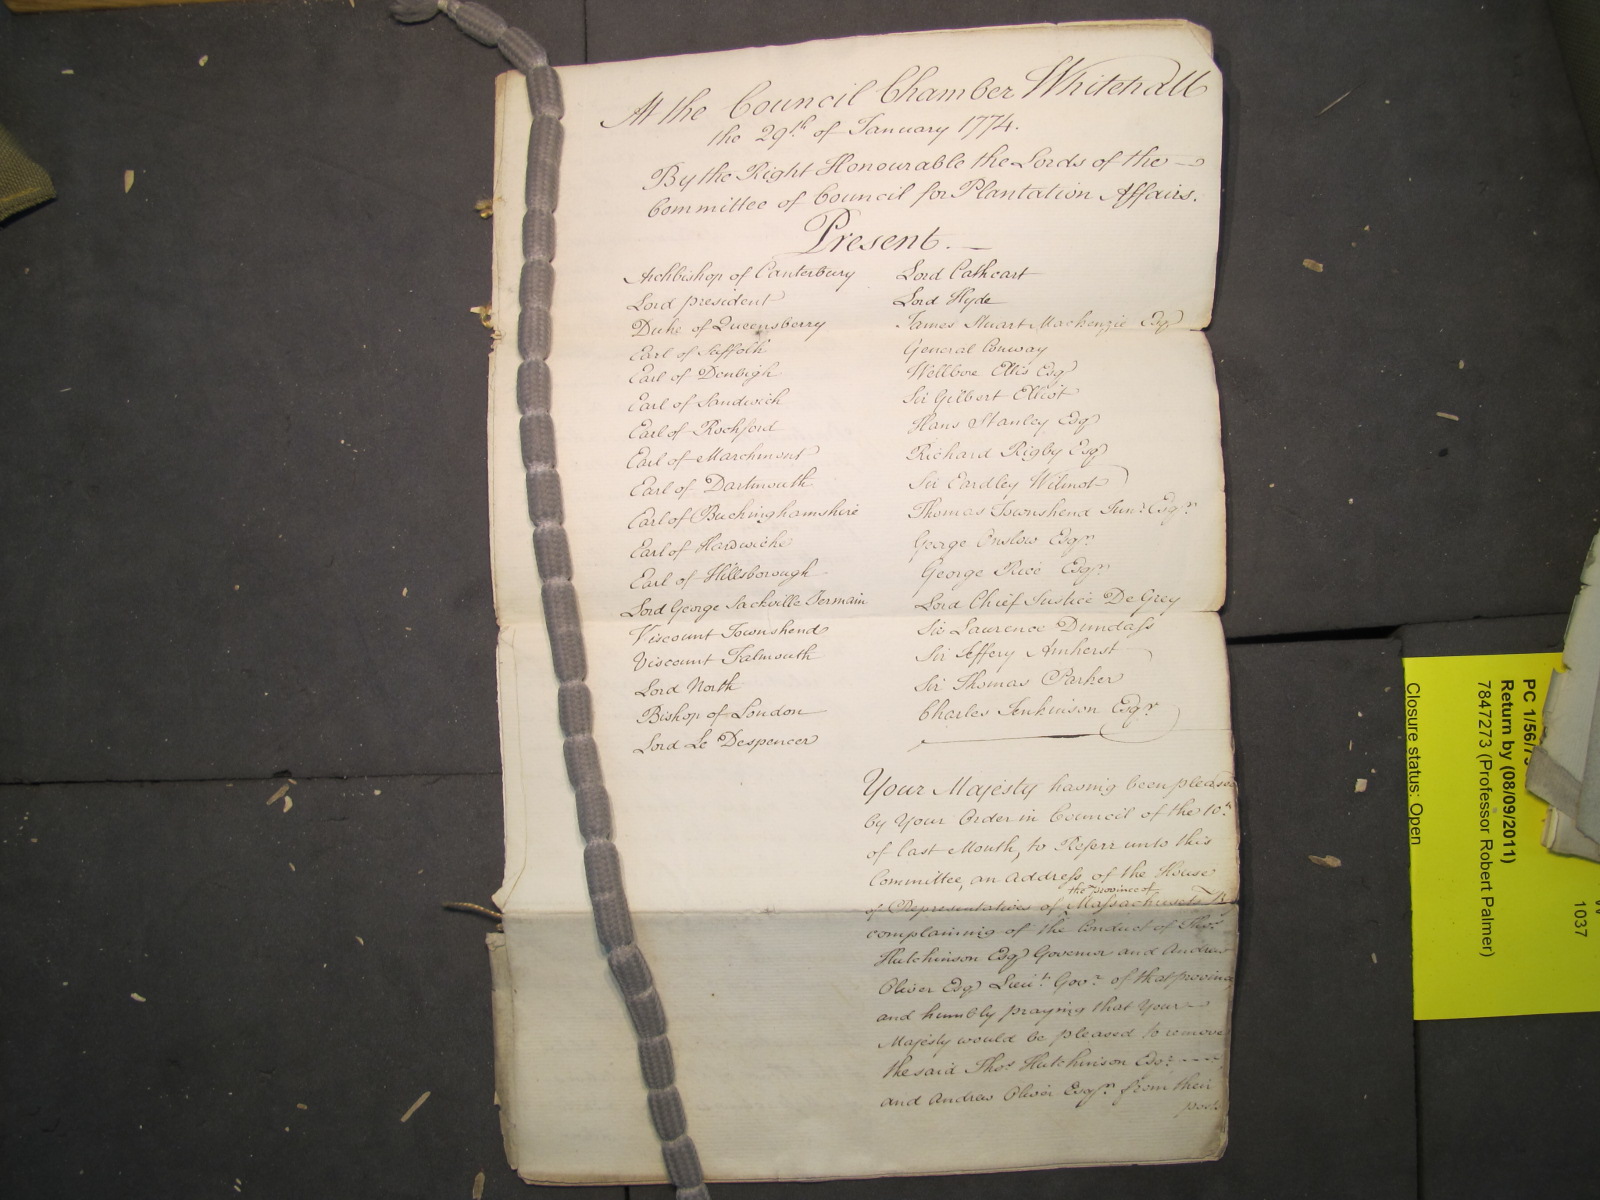 At the Council Chamber Whitehall
the 29th of January 1774.
By the Right Honourable the Lords of the
Committee of Council for Plantation Affairs.
Present.
Archbishop of Canterbury
Lord president
Duke of Queensberry
Earl of Suffolk
Earl of Denbigh
Earl of Sandwich
Earl of Rochford
Earl of Marchmont
Earl of Dartmouth
Earl of Buckinghamshire
Earl of Hardwicke
Earl of Hillsborough
Lord George Sackville Germain
Viscount Townshend
Viscount Falmouth
Lord North
Bishop of London
Lord Le Despencer
Lord Cathcart
Lord Hyde
James Stuart Mackenzie Esqr
General Conway
Wellbore Ellis Esqr
Sir Gilbert Elliot
Hans Stanley Esqr
Richard Rigby Esqr
Sir Eardley Wilmot
Thomas Townshend Junr. Esqr.
George Onslow Esqr.
George Rice Esqr.
Lord Chief Justice De Grey
Sir Laurence Dundass
Sir Jeffery Amherst
Sir Thomas Parker
Charles Jenkinson Esqr.
Your Majesty having been pleased
by Your Order in Council of the 10th
of last Month, to Referr unto this
Committee, an Address of the House
of Representatives of the province of Massachusets
complaining of the Conduct of Thos.
Hutchinson Esqr Governor and Andrew
Oliver Esqr Lieut. Govr. of that province
and humbly praying that Your
Majesty would be pleased to remove
the said Thos. Hutchinson Esqr.
and Andrew Oliver Esqr. from their
posts
PC 1/56/7
Return by (08/09/2011)
7847273 (Professor Robert Palmer)
Closure status: Open
1037